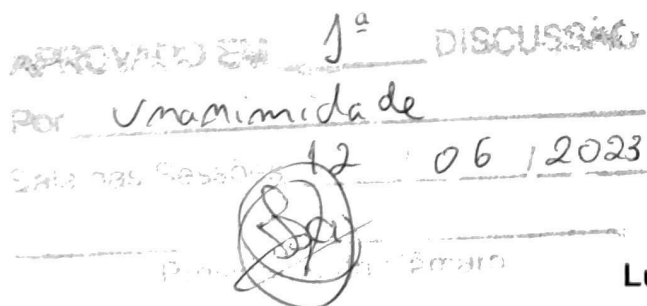 APROVADO EM 1ª DISCUSSÃO
Por Unanimidade
Sala das Sessões 12 / 06 / 2023
Câmara
Lu